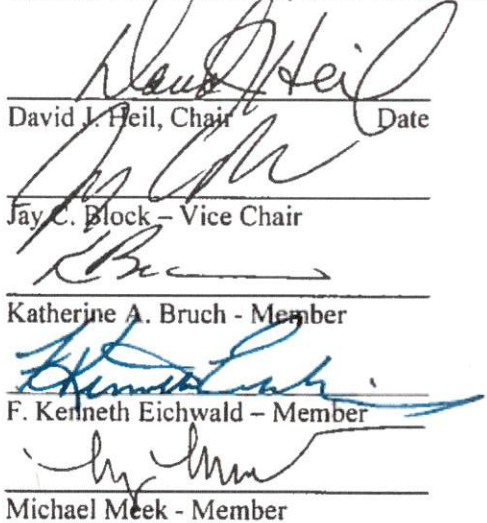 David J. Heil
David J. Heil, Chair Date
Jay C. Block – Vice Chair
K Bruch
Katherine A. Bruch - Member
F. Kenneth Eichwald – Member
Michael Meek - Member